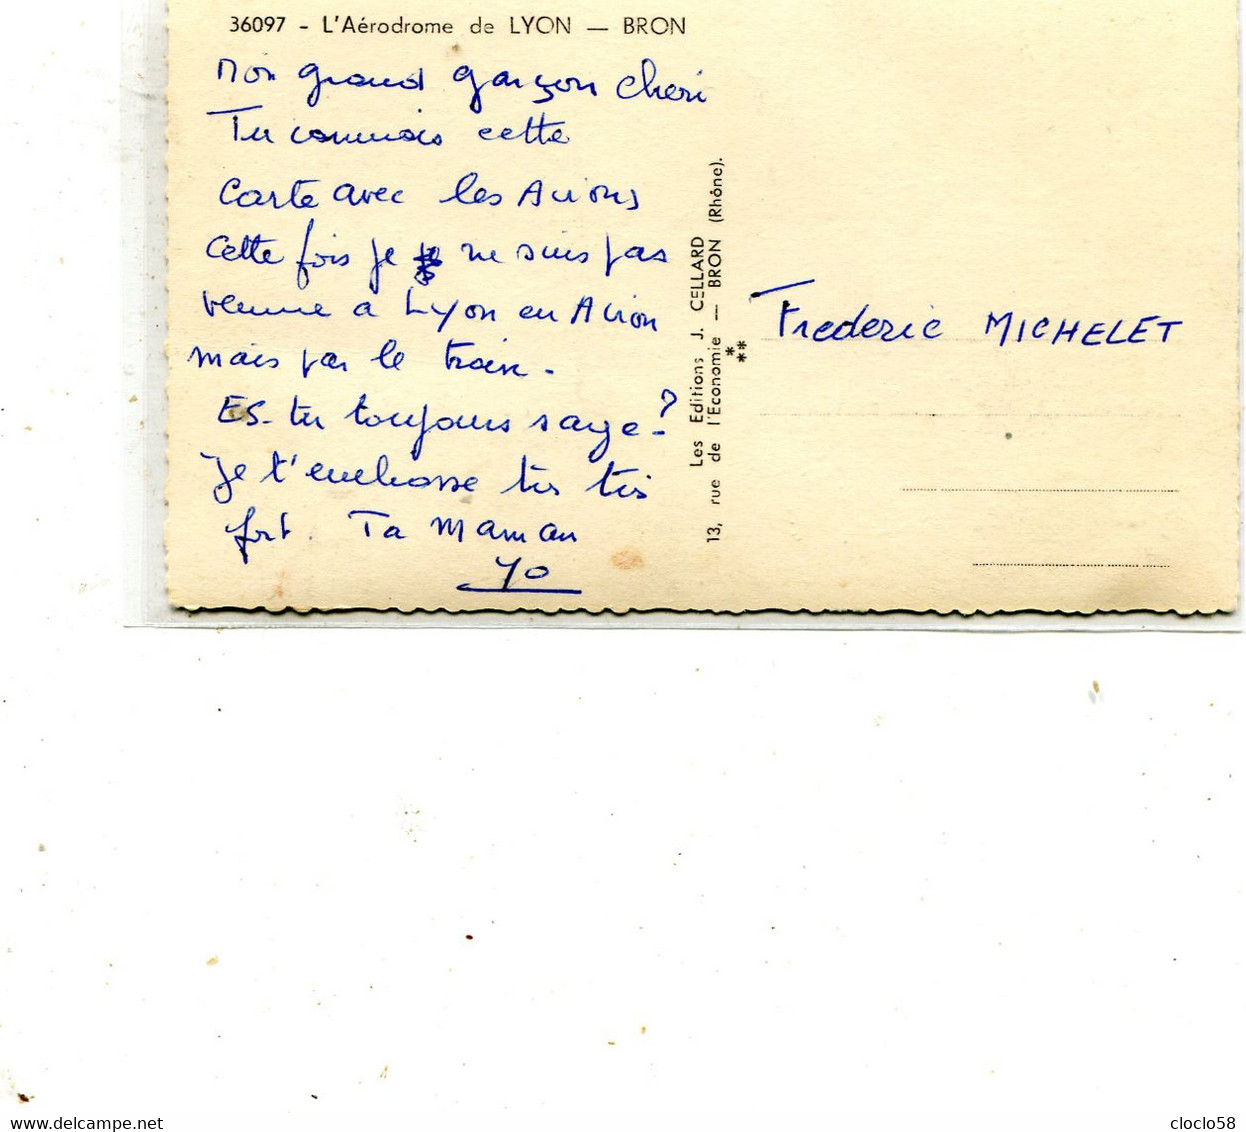 36097 - L'Aérodrome de LYON — BRON
mon grand garçon cheri
Tu connais cette
carte avec les Avions
cette fois je ne suis pas
venue a Lyon en Avion
mais par le train -
ES-tu toujours sage - ?
je t'embrasse très très
fort. Ta Maman
Yo
Les Editions J. CELLARD
13, rue de l'Economie — BRON (Rhône).
Frederic MICHELET
www.delcampe.net
cloclo58